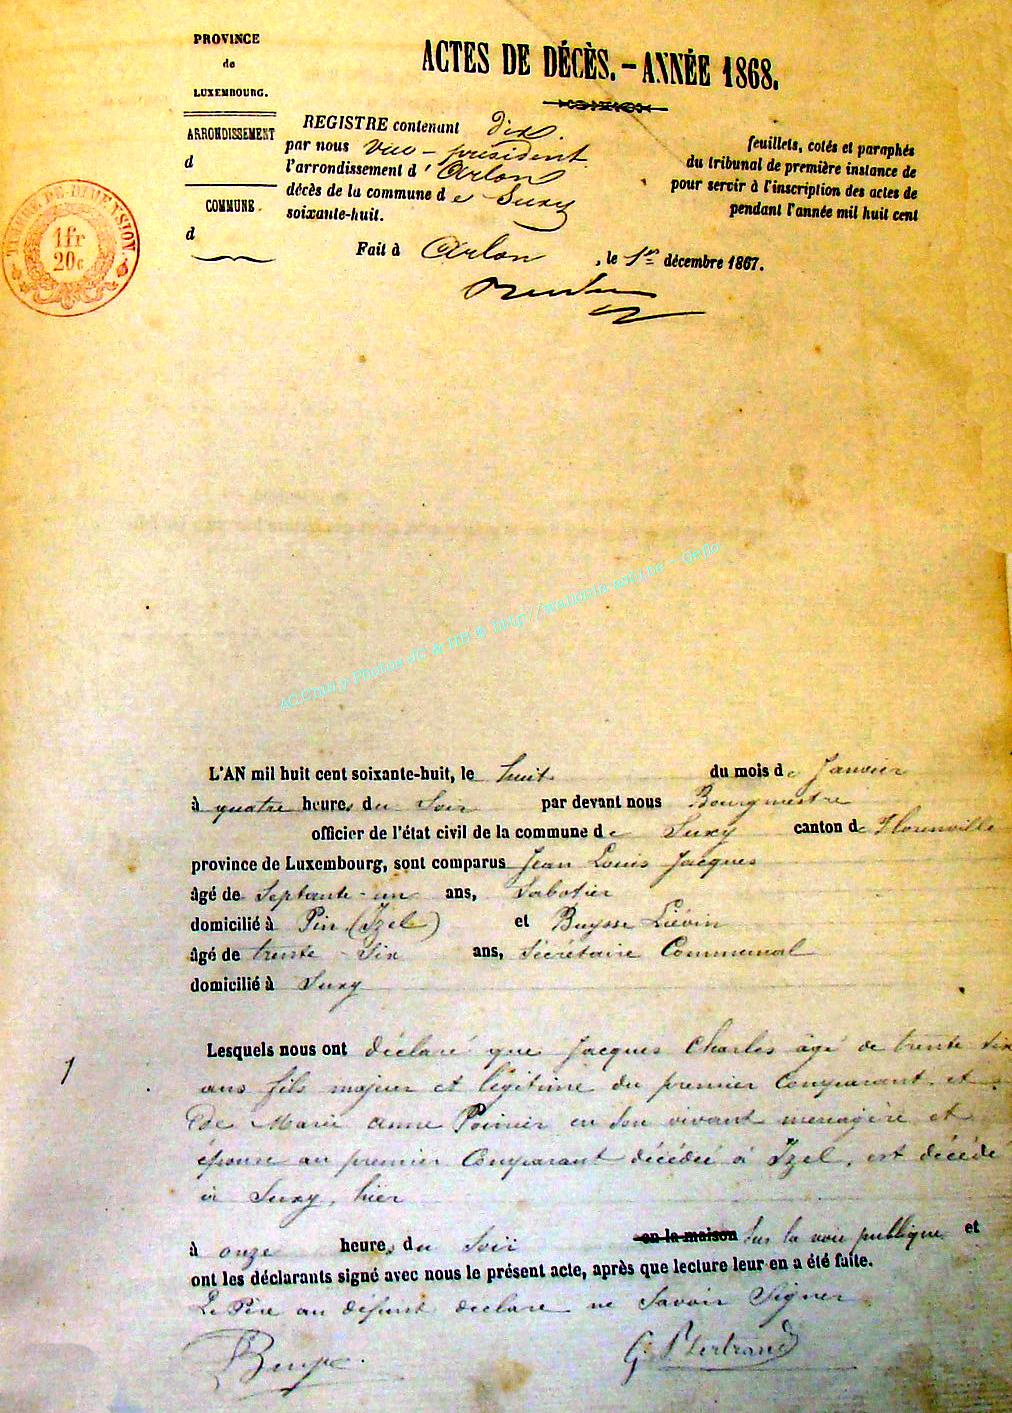 PROVINCE
de
LUXEMBOURG.
ARRONDISSEMENT
d
COMMUNE
d
TIMBRE DE DIMENSION
1 fr
20 c
ACTES DE DÉCÈS. - ANNÉE 1868.
REGISTRE contenant dix feuillets, cotés et paraphés
par nous vice-président du tribunal de première instance de
l'arrondissement d'Arlon pour servir à l'inscription des actes de
décès de la commune de Suxy pendant l'année mil huit cent
soixante-huit.
Fait à Arlon, le 1er décembre 1867.
AC Chiny Photos JC & HB © http://wallonia-asbl.be - GeBo
L'AN mil huit cent soixante-huit, le huit du mois de Janvier
à quatre heures du Soir par devant nous Bourgmestre
officier de l'état civil de la commune de Suxy canton de Florenville
province de Luxembourg, sont comparus Jean Louis Jacques
âgé de Septante-un ans, Sabotier
domicilié à Pin (Izel) et Buysse Liévin
âgé de trente-Six ans, Sécrétaire Communal
domicilié à Suxy
1
Lesquels nous ont déclaré que Jacques Charles âgé de trente six
ans fils majeur et légitime du premier Comparant et
de Marie Anne Poirier en son vivant menagère et
épouse au premier Comparant décédée à Izel, est décédé
à Suxy, hier
à onze heures du Soir en la maison Sur la voie publique et
ont les déclarants signé avec nous le présent acte, après que lecture leur en a été faite.
Le Père au défunt declare ne Savoir Signer
G. Bertrand